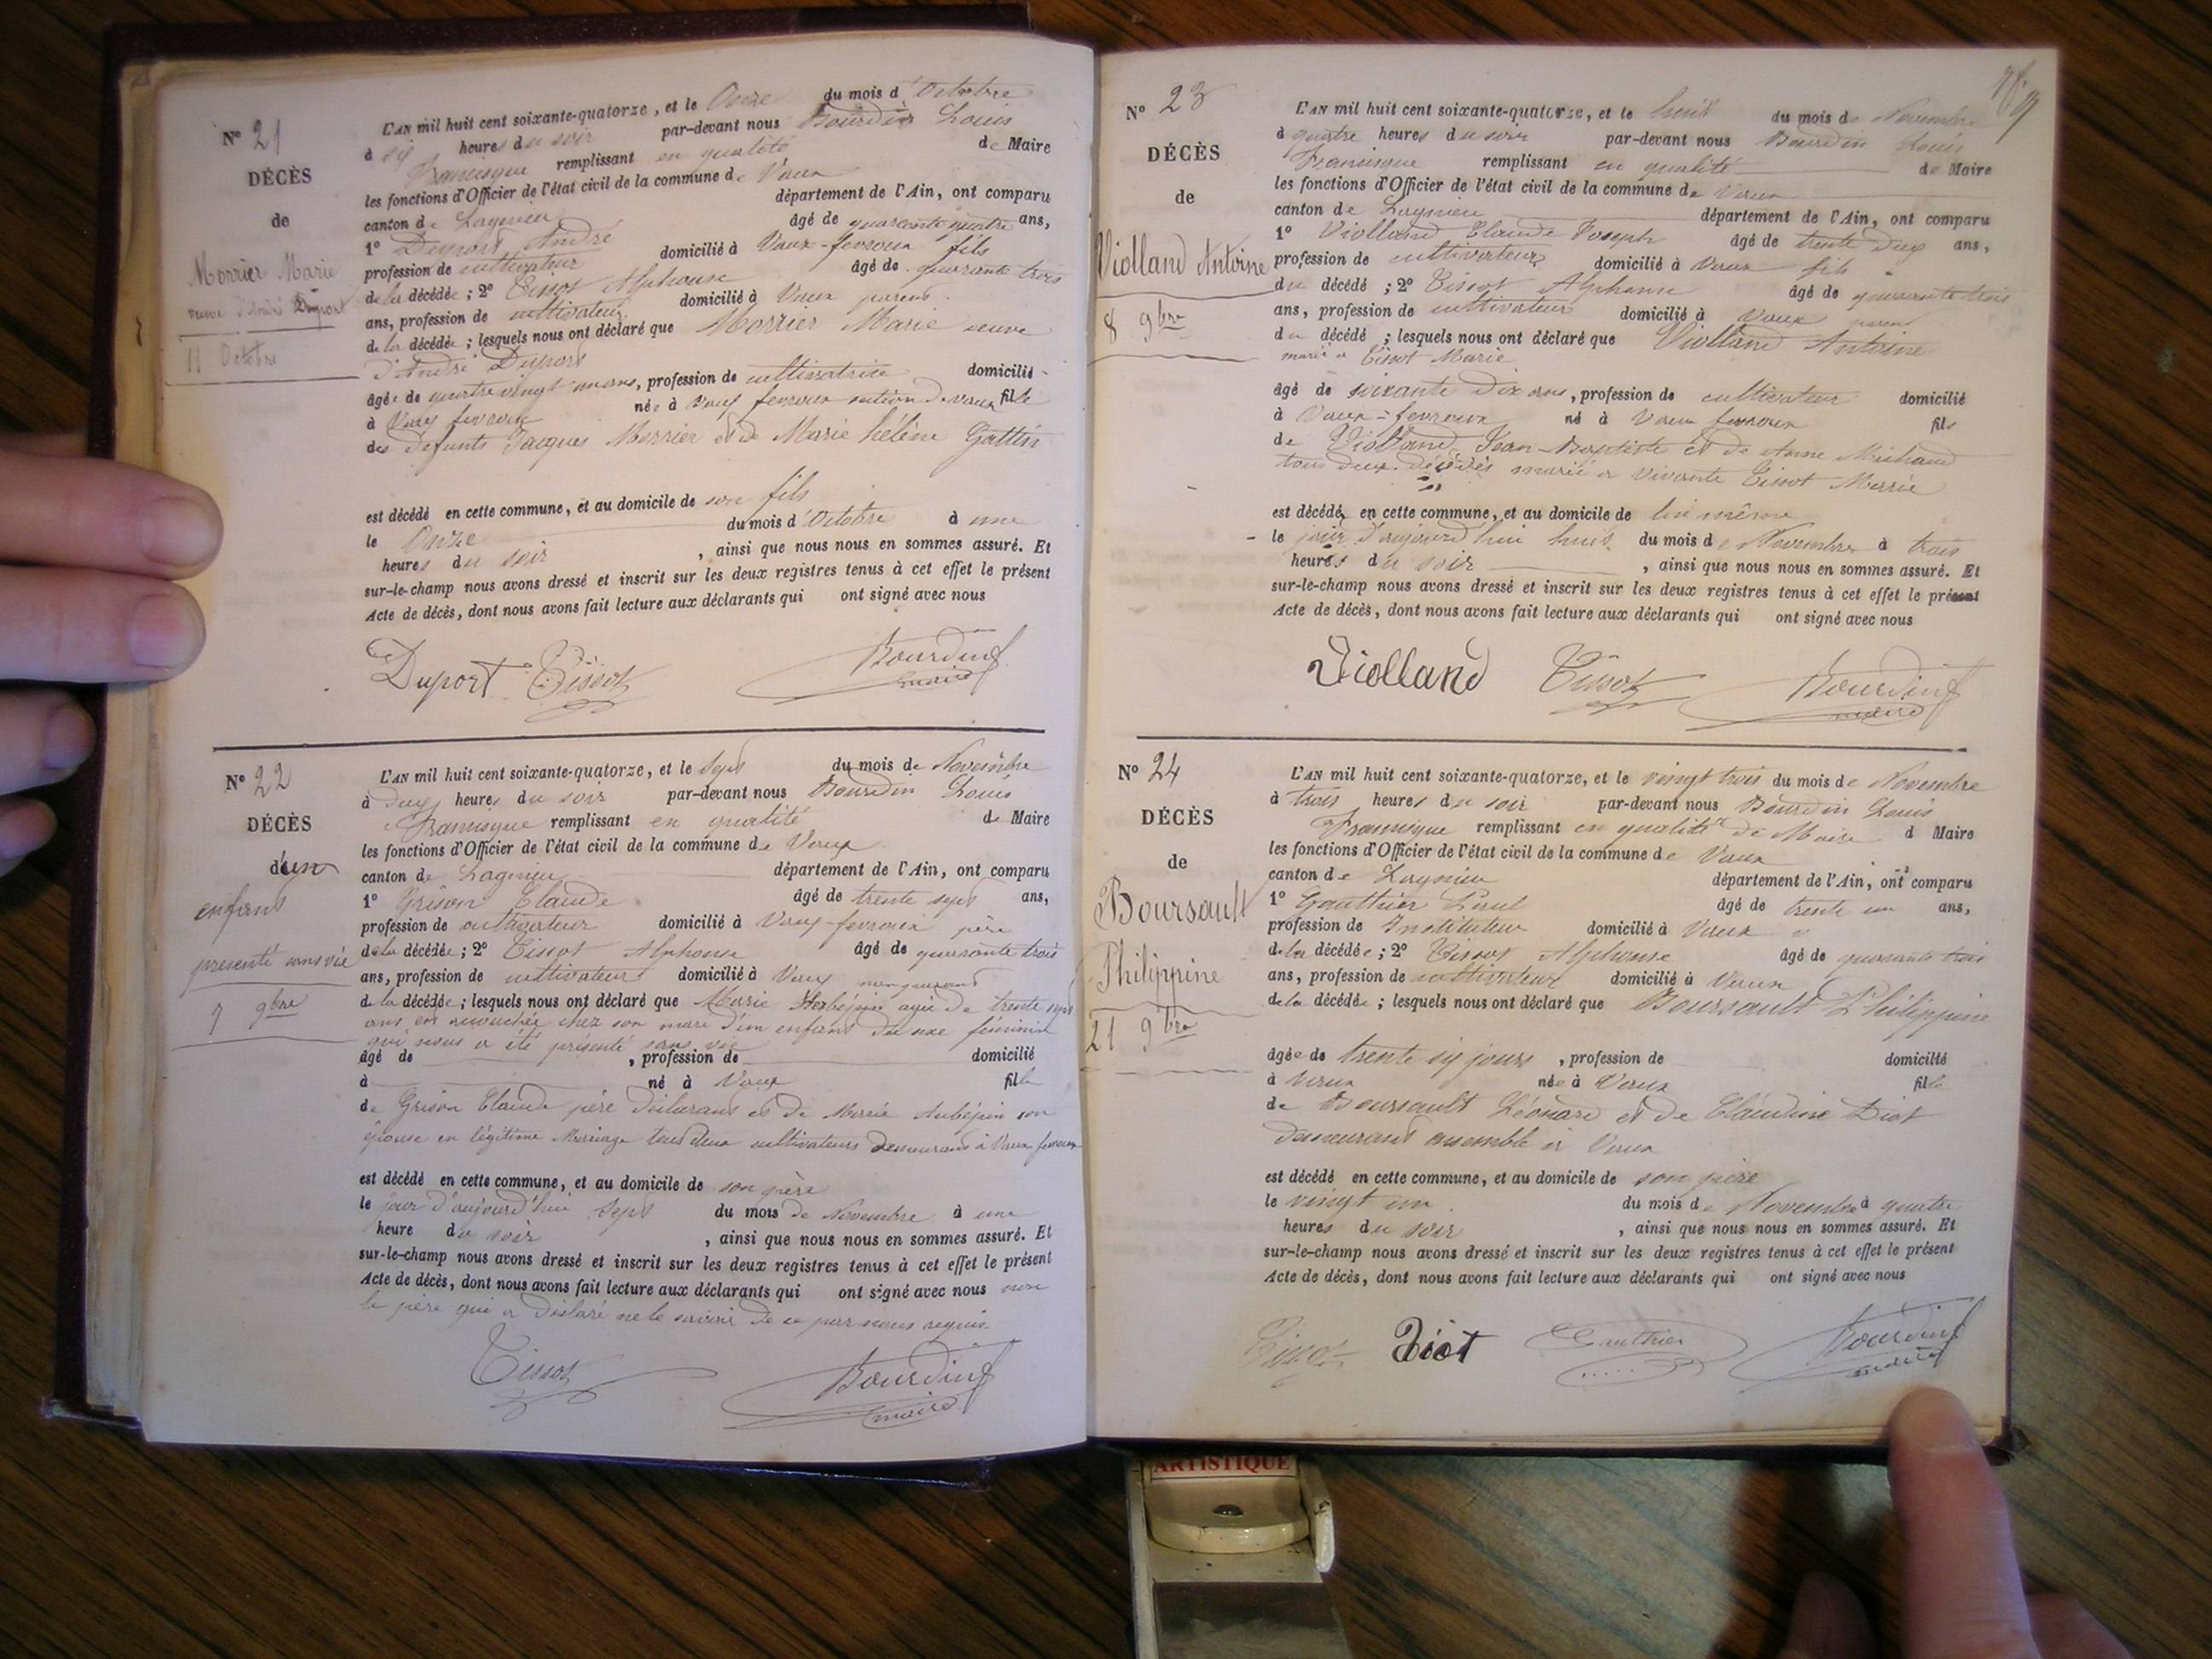 N° 21
DÉCÈS
de
Morrier Marie
veuve d'André Duport
11 Octobre
L'AN mil huit cent soixante-quatorze, et le Onze du mois d'Octobre
à six heures du soir par-devant nous Bourdin Louis
Francisque remplissant en qualité de Maire
les fonctions d'Officier de l'état civil de la commune de Vaux
canton de Lagnieu département de l'Ain, ont comparu
1° Duport André âgé de quarante quatre ans,
profession de cultivateur domicilié à Vaux-fevroux fils
de la décédée ; 2° Tissot Alphonse âgé de quarante trois
ans, profession de cultivateur domicilié à Vaux parent
de la décédée ; lesquels nous ont déclaré que Morrier Marie veuve
d'André Duport
âgée de quatre vingt ans, profession de cultivatrice domicilié
à Vaux fevroux née à Vaux fevroux section de vaux fille
des défunts Jacques Morrier et de Marie hélène Gattin
est décédé en cette commune, et au domicile de son fils
le Onze du mois d'Octobre à une
heures du soir, ainsi que nous nous en sommes assuré. Et
sur-le-champ nous avons dressé et inscrit sur les deux registres tenus à cet effet le présent
Acte de décès, dont nous avons fait lecture aux déclarants qui ont signé avec nous
Duport Tissot Bourdin f
maire
N° 22
DÉCÈS
d'un
enfant
presenté sans vie
7 9bre
L'AN mil huit cent soixante-quatorze, et le Sept du mois de Novembre
à deux heures du soir par-devant nous Bourdin Louis
Francisque remplissant en qualité de Maire
les fonctions d'Officier de l'état civil de la commune de Vaux
canton de Lagnieu département de l'Ain, ont comparu
1° Grison Claude âgé de trente sept ans,
profession de cultivateur domicilié à Vaux-fevroux père
de la décédée ; 2° Tissot Alphonse âgé de quarante trois
ans, profession de cultivateur domicilié à Vaux non parent
de la décédée ; lesquels nous ont déclaré que Marie Aubépin agée de trente sept
ans est accouchée chez son mari d'un enfant du sexe féminin
qui nous a été présenté sans vie
âgé de , profession de domicilié
à né à Vaux fille
de Grison Claude père déclarant et de Marie Aubépin son
épouse en légitime Mariage tous deux cultivateurs demeurant à Vaux fevroux
est décédé en cette commune, et au domicile de son père
le jour d'aujourd'hui Sept du mois de Novembre à une
heure du soir, ainsi que nous nous en sommes assuré. Et
sur-le-champ nous avons dressé et inscrit sur les deux registres tenus à cet effet le présent
Acte de décès, dont nous avons fait lecture aux déclarants qui ont signé avec nous non
le père qui a déclaré ne le savoir de ce par nous requis.
Tissot Bourdin f
maire
N° 23
DÉCÈS
de
Violland Antoine
8 9bre
L'AN mil huit cent soixante-quatorze, et le huit du mois de Novembre
à quatre heures du soir par-devant nous Bourdin Louis
Francisque remplissant en qualité de Maire
les fonctions d'Officier de l'état civil de la commune de Vaux
canton de Lagnieu département de l'Ain, ont comparu
1° Violland Claude Joseph âgé de trente deux ans,
profession de cultivateur domicilié à Vaux fils
du décédé ; 2° Tissot Alphonse âgé de quarante trois
ans, profession de cultivateur domicilié à Vaux parent
du décédé ; lesquels nous ont déclaré que Violland Antoine
marié a Tissot Marie
âgé de soixante dix ans, profession de cultivateur domicilié
à Vaux-fevroux né à Vaux fevroux fils
de Violland Jean-Baptiste et de Anne Michaud
tous deux décédés marié a vivante Tissot Marie
est décédé en cette commune, et au domicile de lui même
le jour d'aujourd'hui huit du mois de Novembre à trois
heures du soir, ainsi que nous nous en sommes assuré. Et
sur-le-champ nous avons dressé et inscrit sur les deux registres tenus à cet effet le présent
Acte de décès, dont nous avons fait lecture aux déclarants qui ont signé avec nous
Violland Tissot Bourdin f
maire
N° 24
DÉCÈS
de
Boursault
Philippine
21 9bre
L'AN mil huit cent soixante-quatorze, et le vingt trois du mois de Novembre
à trois heures du soir par-devant nous Bourdin Louis
Francisque remplissant en qualité de Maire d Maire
les fonctions d'Officier de l'état civil de la commune de Vaux
canton de Lagnieu département de l'Ain, ont comparu
1° Gauthier Paul âgé de trente un ans,
profession de Instituteur domicilié à Vaux
de la décédée ; 2° Tissot Alphonse âgé de quarante trois
ans, profession de cultivateur domicilié à Vaux
de la décédée ; lesquels nous ont déclaré que Boursault Philippine
âgée de trente six jours, profession de domicilié
à Vaux née à Vaux fille
de Boursault Léonard et de Claudine Diot
demeurant ensemble à Vaux
est décédé en cette commune, et au domicile de son père
le vingt un du mois de Novembre à quatre
heures du soir, ainsi que nous nous en sommes assuré. Et
sur-le-champ nous avons dressé et inscrit sur les deux registres tenus à cet effet le présent
Acte de décès, dont nous avons fait lecture aux déclarants qui ont signé avec nous
Tissot Diot Gauthier Bourdin f
maire
ARTISTIQUE